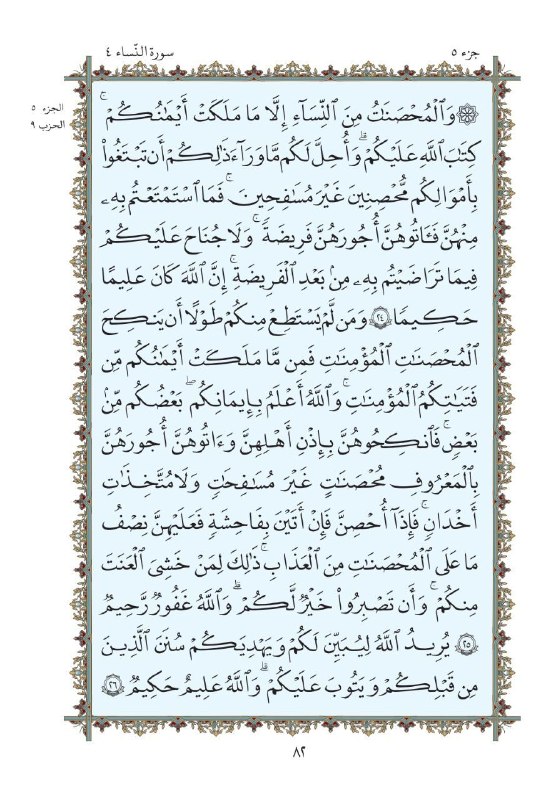 جزء ٥
سورة النّساء ٤
الجزء ٥
الحزب ٩
۞ وَٱلْمُحْصَنَٰتُ مِنَ ٱلنِّسَآءِ إِلَّا مَا مَلَكَتْ أَيْمَٰنُكُمْ ۖ
كِتَٰبَ ٱللَّهِ عَلَيْكُمْ ۚ وَأُحِلَّ لَكُم مَّا وَرَآءَ ذَٰلِكُمْ أَن تَبْتَغُوا۟
بِأَمْوَٰلِكُم مُّحْصِنِينَ غَيْرَ مُسَٰفِحِينَ ۚ فَمَا ٱسْتَمْتَعْتُم بِهِۦ
مِنْهُنَّ فَـَٔاتُوهُنَّ أُجُورَهُنَّ فَرِيضَةً ۚ وَلَا جُنَاحَ عَلَيْكُمْ
فِيمَا تَرَٰضَيْتُم بِهِۦ مِنۢ بَعْدِ ٱلْفَرِيضَةِ ۚ إِنَّ ٱللَّهَ كَانَ عَلِيمًا
حَكِيمًا ٢٤ وَمَن لَّمْ يَسْتَطِعْ مِنكُمْ طَوْلًا أَن يَنكِحَ
ٱلْمُحْصَنَٰتِ ٱلْمُؤْمِنَٰتِ فَمِن مَّا مَلَكَتْ أَيْمَٰنُكُم مِّن
فَتَيَٰتِكُمُ ٱلْمُؤْمِنَٰتِ ۚ وَٱللَّهُ أَعْلَمُ بِإِيمَٰنِكُم ۚ بَعْضُكُم مِّنۢ
بَعْضٍ ۚ فَٱنكِحُوهُنَّ بِإِذْنِ أَهْلِهِنَّ وَءَاتُوهُنَّ أُجُورَهُنَّ
بِٱلْمَعْرُوفِ مُحْصَنَٰتٍ غَيْرَ مُسَٰفِحَٰتٍ وَلَا مُتَّخِذَٰتِ
أَخْدَانٍ ۚ فَإِذَآ أُحْصِنَّ فَإِنْ أَتَيْنَ بِفَٰحِشَةٍ فَعَلَيْهِنَّ نِصْفُ
مَا عَلَى ٱلْمُحْصَنَٰتِ مِنَ ٱلْعَذَابِ ۚ ذَٰلِكَ لِمَنْ خَشِىَ ٱلْعَنَتَ
مِنكُمْ ۚ وَأَن تَصْبِرُوا۟ خَيْرٌ لَّكُمْ ۗ وَٱللَّهُ غَفُورٌ رَّحِيمٌ
٢٥ يُرِيدُ ٱللَّهُ لِيُبَيِّنَ لَكُمْ وَيَهْدِيَكُمْ سُنَنَ ٱلَّذِينَ
مِن قَبْلِكُمْ وَيَتُوبَ عَلَيْكُمْ ۗ وَٱللَّهُ عَلِيمٌ حَكِيمٌ ٢٦
٨٢